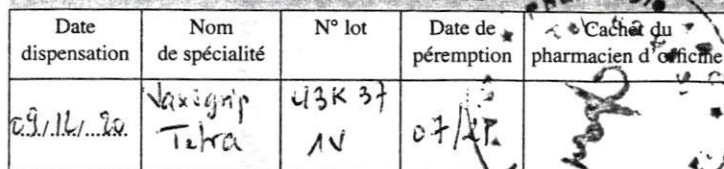 Date
dispensation
Nom
de spécialité
N° lot
Date de
péremption
Cachet du
pharmacien d'officine
09/12/20
Vaxigrip
Tetra
U3K37
1V
07/